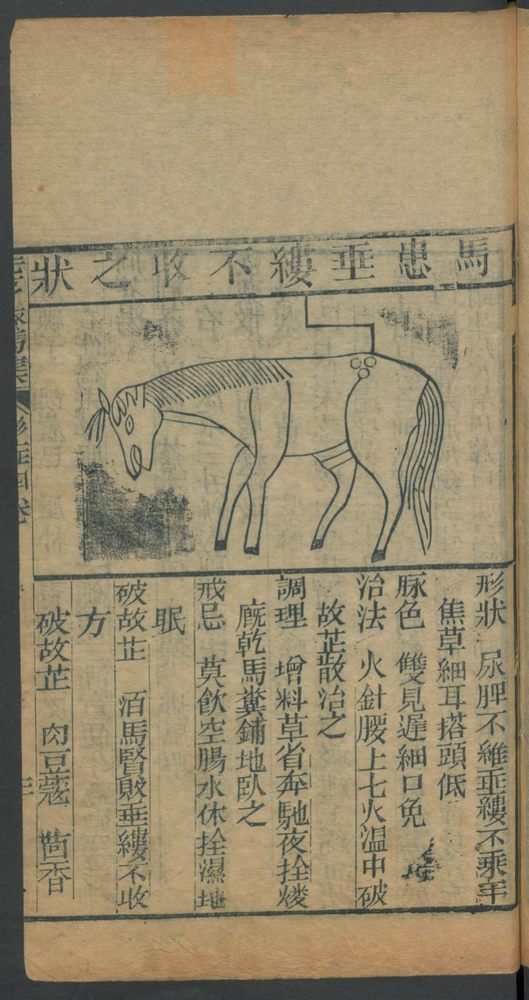 馬患垂縷不收之狀
形狀 尿脬不維垂縷不乗
焦草細耳搭頭低
脉色 雙見遲細口免
治法 火針腰上七火溫中破
故芷散治之
調理 增料草省奔馳夜拴煖
廐乾馬糞鋪地臥之
戒忌 莫飲空腸水休拴濕地
眠
破故芷 治馬腎敗垂縷不收
方
破故芷 肉豆蔻 茴香